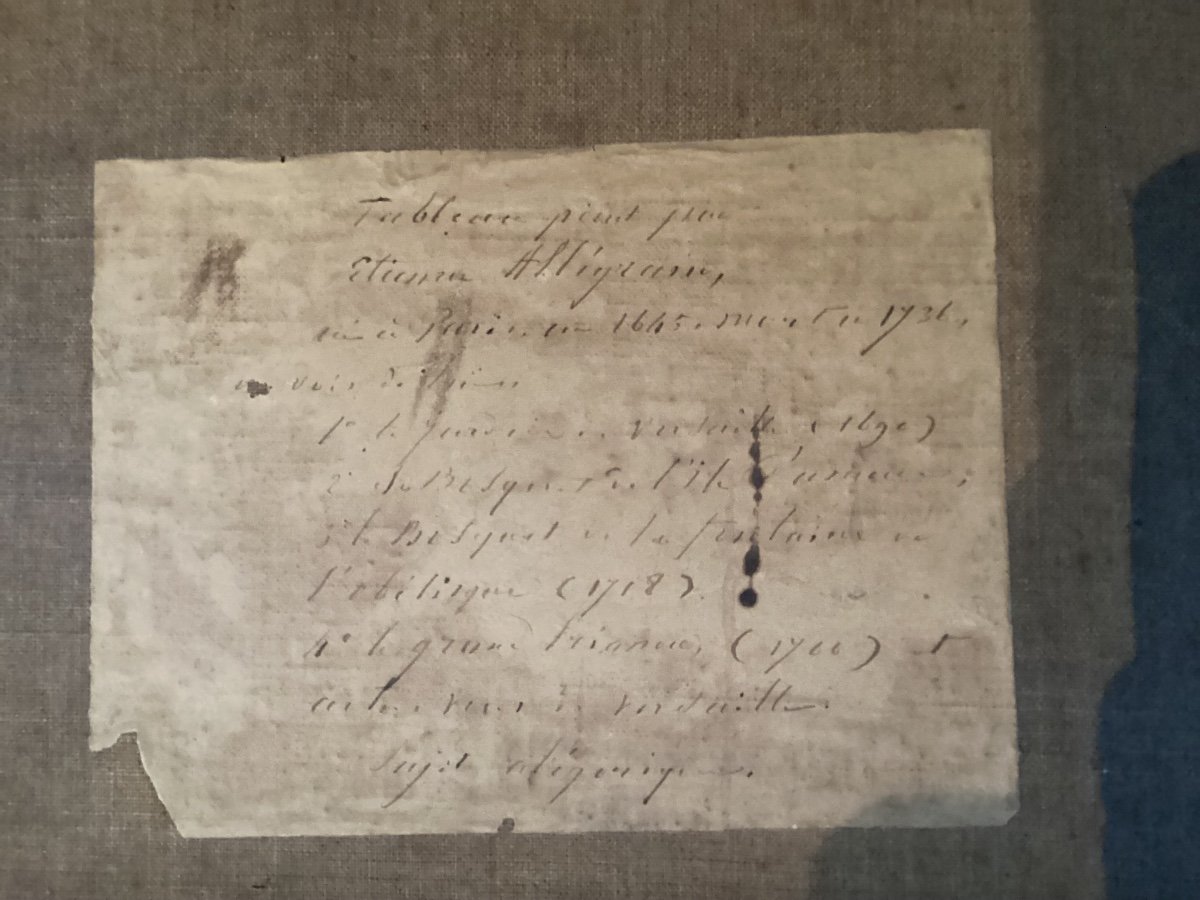 Tableau peint par
Etienne Allégrain,
né à Paris en 1645, mort en 1736,
1° le jardin de Versailles (1690)
2° le Bosquet de l'Ile d'amour;
3° le Bosquet de la fontaine de
l'obélisque (1718).
4° le grand Trianon, (1700) et
autres vues de Versailles.
Sujet allégorique.